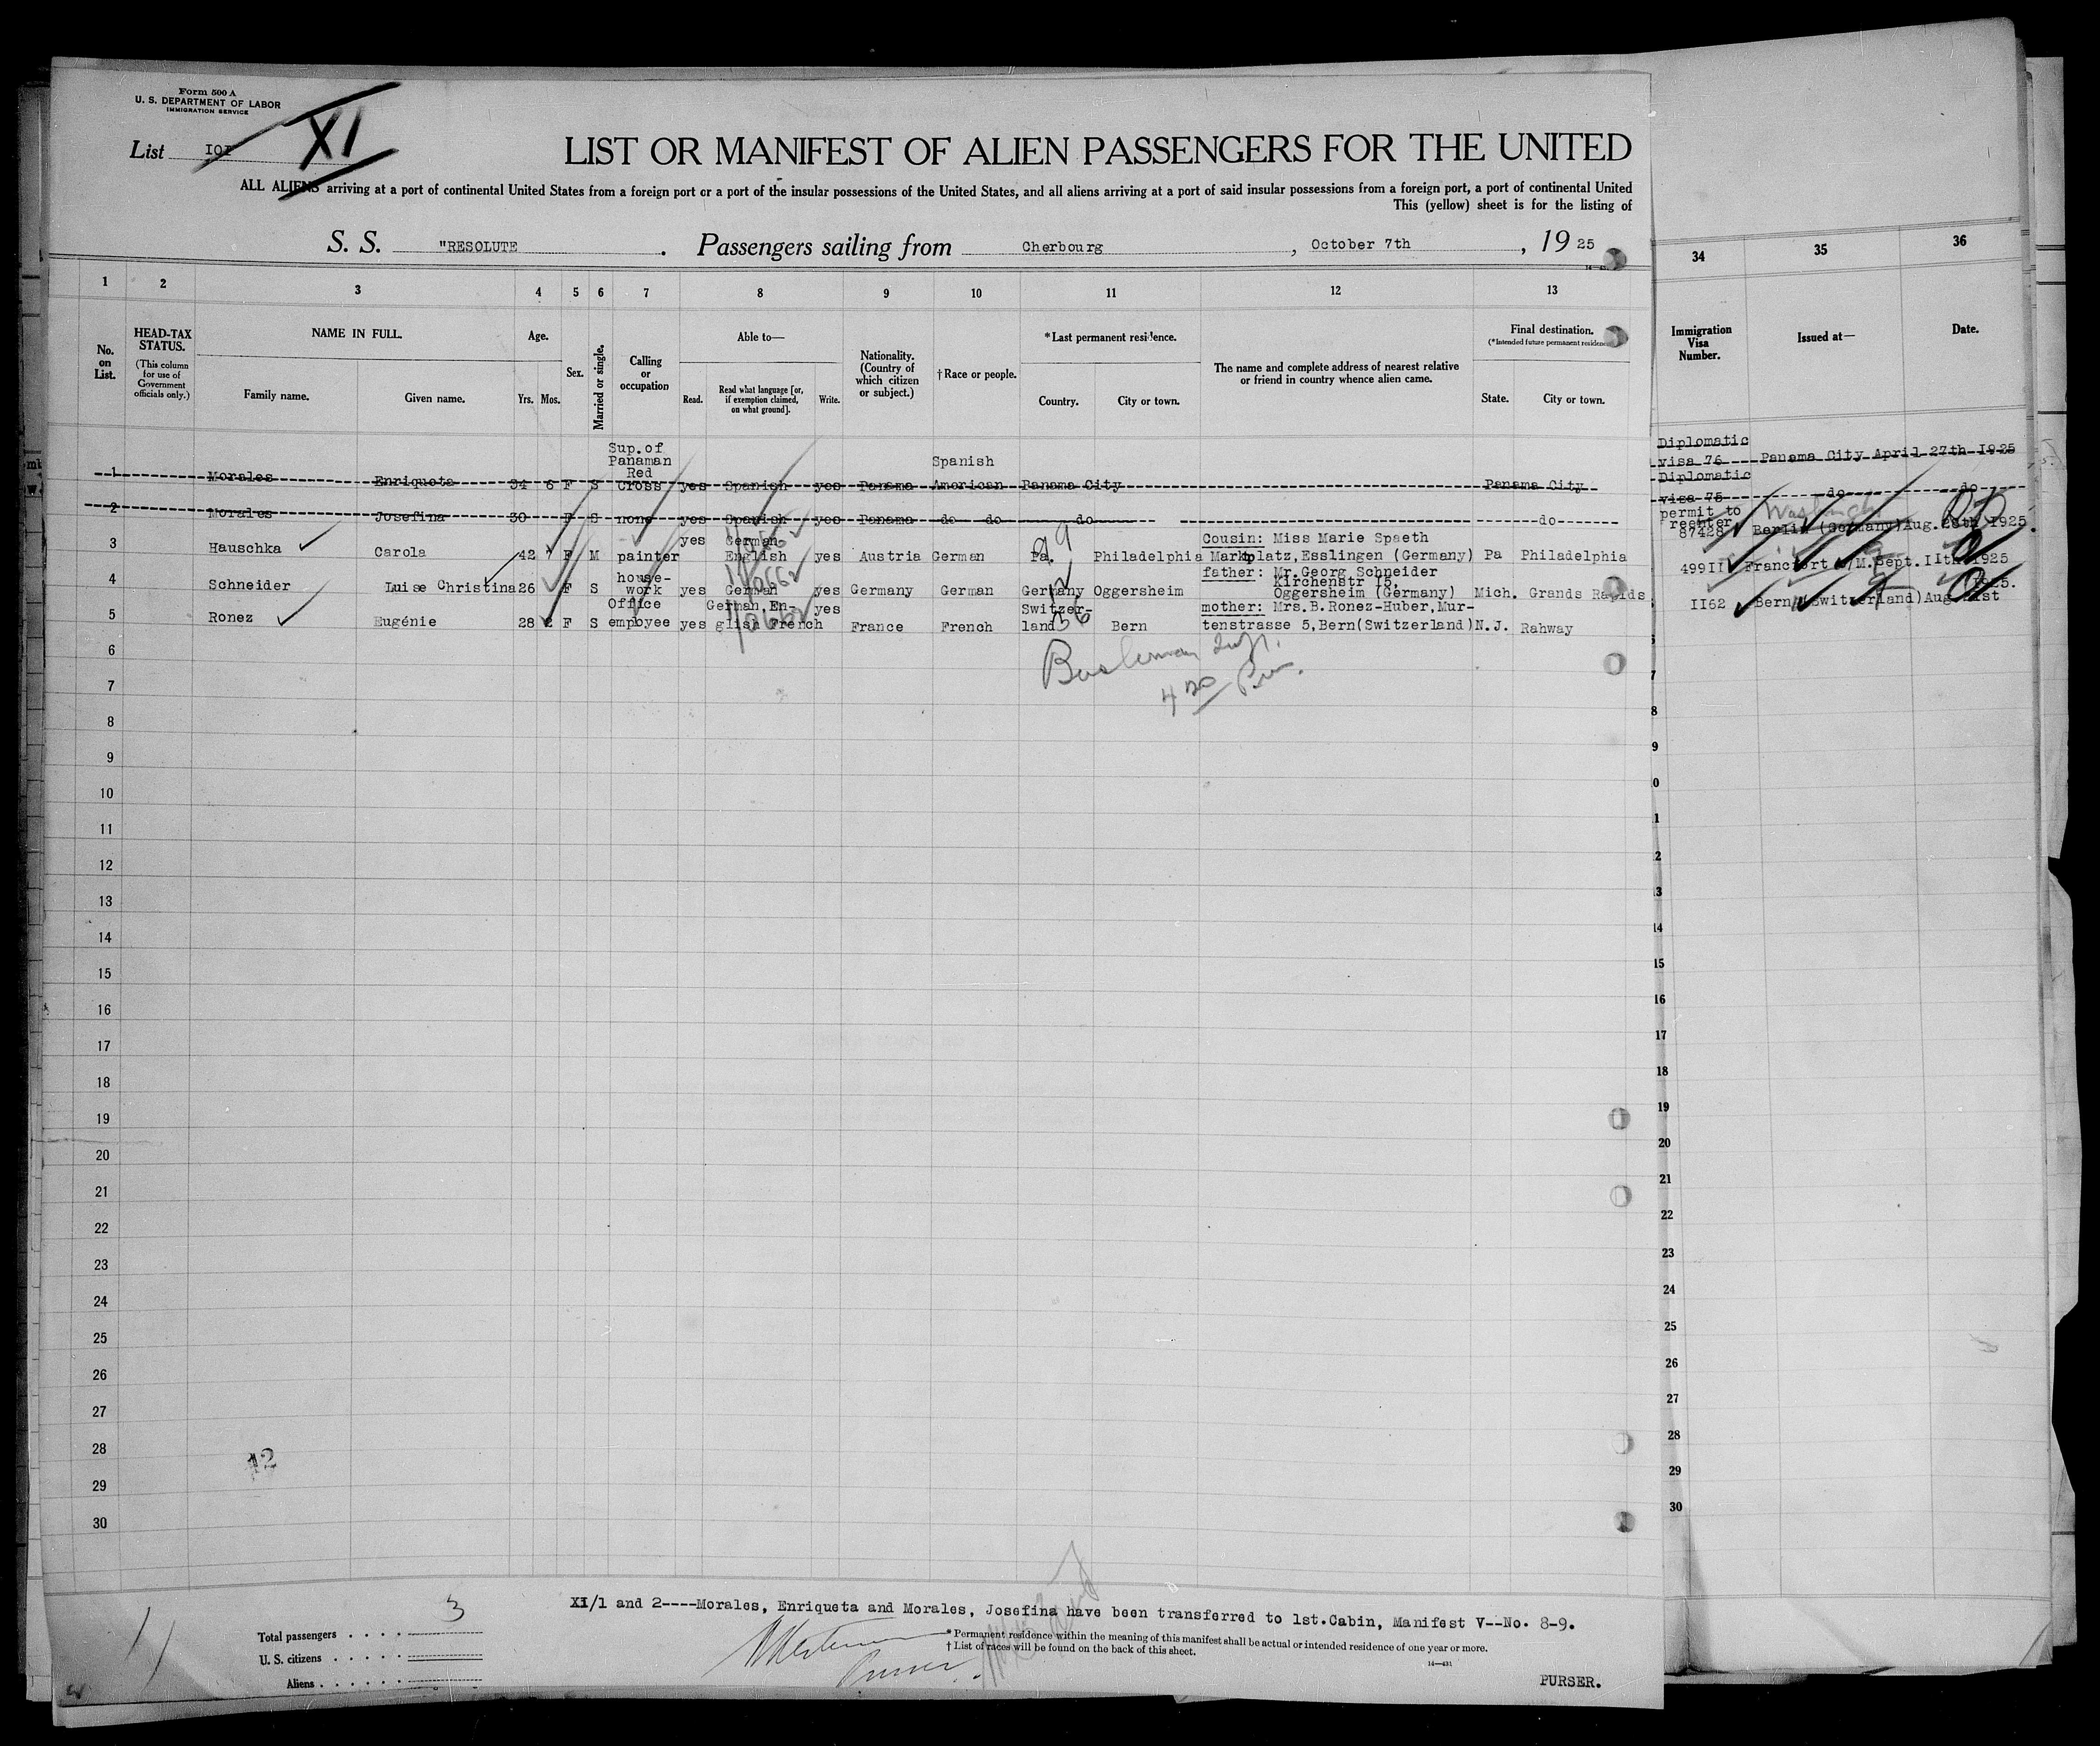 Form 500 A
U. S. DEPARTMENT OF LABOR
IMMIGRATION SERVICE
List IOI XI
LIST OR MANIFEST OF ALIEN PASSENGERS FOR THE UNITED
ALL ALIENS arriving at a port of continental United States from a foreign port or a port of the insular possessions of the United States, and all aliens arriving at a port of said insular possessions from a foreign port, a port of continental United
This (yellow) sheet is for the listing of
S. S. "RESOLUTE . Passengers sailing from Cherbourg , October 7th , 19 25
1 2 3 4 5 6 7 8 9 10 11 12 13 34 35 36
No. on List.
HEAD-TAX STATUS.
(This column for use of Government officials only.)
NAME IN FULL.
Family name. Given name.
Age.
Yrs. Mos.
Sex.
Married or single.
Calling or occupation
Able to—
Read. Read what language [or, if exemption claimed, on what ground]. Write.
Nationality. (Country of which citizen or subject.)
†Race or people.
*Last permanent residence.
Country. City or town.
The name and complete address of nearest relative or friend in country whence alien came.
Final destination.
(*Intended future permanent residence
State. City or town.
Immigration Visa Number.
Issued at—
Date.
1 Morales Enriqueta 34 6 F S Sup.of Panaman Red Cross yes Spanish yes Panama Spanish American Panama City Panama City Diplomatic visa 76 Panama City April 27th 1925
2 Morales Josefina 30 F S none yes Spanish yes Panama do do do do Diplomatic visa 75 do do
3 Hauschka Carola 42 7 F M painter yes German English yes Austria German Pa. Philadelphia Cousin: Miss Marie Spaeth Marktplatz,Esslingen (Germany) Pa Philadelphia permit to reenter 87428 Berlin (Germany) Aug.28th 1925
4 Schneider Luise Christina 26 F S house-work yes German yes Germany German Germany Oggersheim father: Mr.Georg Schneider Kirchenstr 15, Oggersheim (Germany) Mich. Grands Rapids 499II Francfort /M. Sept.IIth 1925
5 Ronez Eugénie 28 2 F S Office employee yes German,En-glish French yes France French Switzer-land Bern mother: Mrs.B.Ronez-Huber,Mur-tenstrasse 5,Bern(Switzerland) N.J. Rahway II62 Bern(Switzerland) Aug. 1925.
6
7
8
9
10
11
12
13
14
15
16
17
18
19
20
21
22
23
24
25
26
27
28
29
30
12
3
11
XI/1 and 2----Morales, Enriqueta and Morales, Josefina have been transferred to 1st.Cabin, Manifest V--No. 8-9.
Total passengers
U. S. citizens
Aliens
* Permanent residence within the meaning of this manifest shall be actual or intended residence of one year or more.
† List of races will be found on the back of this sheet.
14—431
Purser.
PURSER.